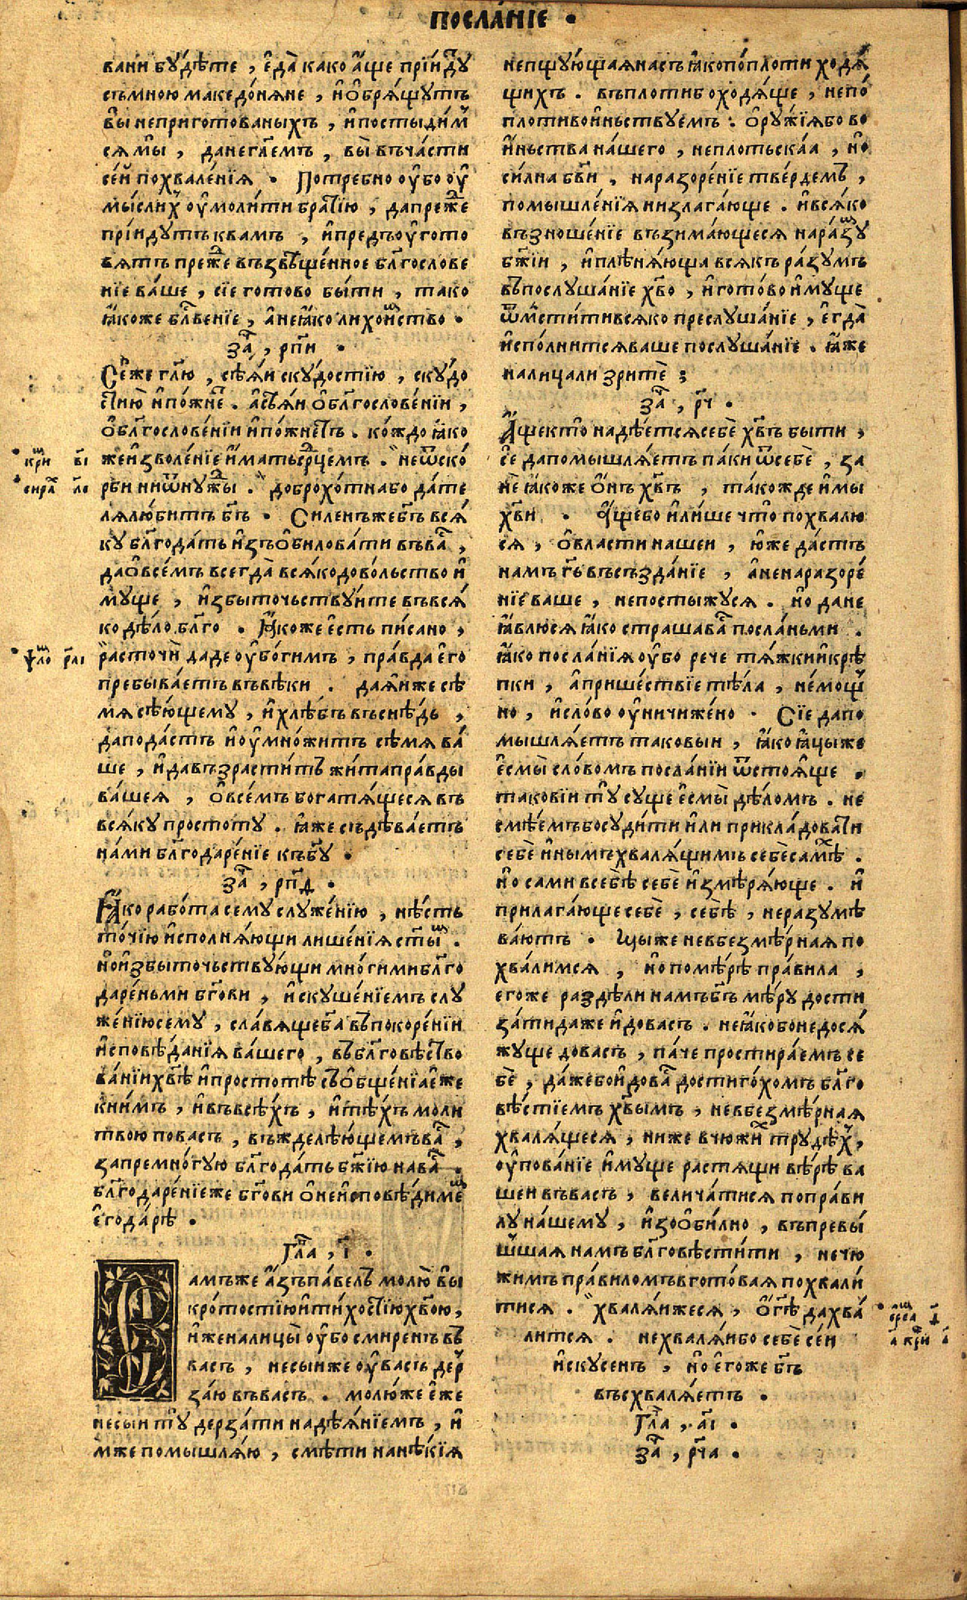 посла́нїе .
вани бꙋ́дѣте , є҆да̀ како а҆́ще прїи́дꙋⷮ
съ мною македо́нѧне , и҆ ѡ҆брѧ́щꙋтъ
вы̀ неприготованыхъ , и҆ постыди́мⷨ
сѧ мы̀ , да не гл҃емъ , вы̀ въ ча́сти
се́й похвале́нїѧ . Потребно ᲂу҆бо ᲂу҆
мы́слиⷯ ᲂу҆моли́ти бра́тїю , да пре́жⷣе
прїи́дꙋтъ к вамъ , и҆ предъᲂу҆гото
вѧтъ пре́жⷣе възвѣще́нное бл҃гослове
нїе ва́ше , сїе готово бы́ти , тако
ꙗ҆́коже бл҃ве́нїе , а҆ не ꙗ҆́ко лихои́мⷨство .
заⷱ҇ , рп҃и .
Се́же гл҃ю , сѣ́ѧи скꙋ́достїю , скꙋ́до
стїю и҆ по́жнеⷮ . а҆ сѣ́ѧи ѡ҆ бл҃гослове́нїи ,
ѡ҆ бл҃гослове́нїи и҆ по́жнетъ . ко́ждо ꙗ҆́ко
же и҆зволе́нїе и҆́мать ср҃цемъ . не ѿ ско́
рби ни ѿ нꙋ́жⷣы . доброхо́тна бо да́те
лѧ лю́битъ бг҃ъ . Силенъ же бг҃ъ всѧ́
кꙋ бл҃года́ть и҆зъѡби́ловати въ ваⷭ҇ ,
да ѡ҆ все́мъ всегда̀ всѧко дово́льство и҆
мꙋще , и҆збы́точьствꙋите въ всѧ́
ко дѣ́ло бл҃го . Ꙗ҆́коже є҆сть пи́сано ,
расточѝ даде ᲂу҆бо́гимъ , пра́вда є҆го
пребыва́етъ въ вѣ́ки . даѧ́и же сѣ́
мѧ сѣ́ющемꙋ , и҆ хлѣ́бъ въ снѣ́дь ,
да пода́стъ и҆ ᲂу҆мно́житъ сѣ́мѧ ва́
ше , и҆ да възрасти́тъ жи́та пра́вды
ва́шеѧ , ѡ҆ все́мъ богатѧ́щесѧ въ
всѧ́кꙋ простотꙋ . ꙗ҆́же съдѣва́етъ
на́ми бл҃годаре́нїе къ бг҃ꙋ .
заⷱ҇ , рп҃ѳ .
Ꙗ҆́ко рабо́та семꙋ слꙋже́нїю , нѣ́сть
то́чїю и҆сполнѧ́ющи лише́нїѧ ст҃ыⷯ .
но и҆ и҆збы́точьствꙋ́ющи мно́гими бл҃го
даре́ньми бг҃ови , и҆скꙋше́нїемъ слꙋ
же́нїю семꙋ , сла́вѧще бг҃а въ покоре́нїи
и҆сповѣ́данїѧ ва́шего , въ бл҃говѣ́ство
ва́нїи хв҃ѣ и҆ простотѣ̀ съѡ҆бще́нїѧ є҆́же
к ни́мъ , и҆ въ всѣ́хъ , и҆ тѣ́хъ моли
твою по васъ , въжделѣ́ющемъ ваⷭ҇ ,
за премно́гꙋю бл҃года́ть бж҃їю на ваⷭ҇ .
бл҃годаре́нїе же бг҃ови ѡ҆ неисповѣ́димѣⷨ
є҆го да́рѣ .
Гла҃ , і҃ .
Самъ же а҆́зъ па́велъ молю̀ вы̀
кро́тостїю и҆ ти́хостїю хв҃ою ,
и҆́же на лицѐ ᲂу҆бо смиренъ въ
васъ , не сы́и же ᲂу҆ васъ деⷬ҇
за́ю въ васъ . молю́ же є҆́же
не сы́и тꙋ̀ держа́ти надѣ́ѧнїемъ , и҆
мже помышлѧ́ю , смѣти на нѣ́кїѧ
непщꙋ́ющаѧ насъ ꙗ҆́ко по пло́ти ходѧ́
щихъ . въ пло́ти бо ходѧ́ще , не по
пло́ти во́иньствꙋемъ . ѻ҆рꙋ́жїѧ бо во
и҆́ньства на́шего , не плотьска́ѧ , но
си́лна бг҃ви , на разоре́нїе тве́рдемъ ,
помышле́нїѧ низлага́юще . и҆ всѧ́ко
възноше́нїе взима́ющеесѧ на ра́зꙋⷨ
бж҃їи , и҆ плѣнѧ́юща всѧ́къ ра́зꙋмъ
въ послꙋша́нїе хв҃о , и҆ гото́во и҆мꙋще
ѿмсти́ти всѧко преслꙋша́нїе , є҆гда̀
и҆спо́лнитсѧ ваше послꙋша́нїе . ꙗ҆́же
на лица̀ ли зритѐ ;
заⷱ҇ , рч҃ .
А҆́ще кто̀ надѣ́етсѧ себѐ хв҃ъ быти ,
се́ да помышлѧ́етъ па́ки ѿ себѐ , за
нѐ ꙗ҆́коже ѻ҆́нъ хв҃ъ , та́кожде и҆ мы
хв҃и . А҆́ще бо и҆ ли́ше что̀ похвалю
сѧ , ѡ҆ вла́сти нашеи , ю҆́же да́стъ
намъ гь҃ въ създа́нїе , а҆ не на разоре́
нїе ваше , не постыжꙋ́сѧ . но да не
ꙗ҆влю́сѧ ꙗ҆́ко страша ваⷭ҇ посла́ньми .
ꙗ҆́ко посла́нїѧ ᲂу҆бо рече тѧ́жки и҆ крѣ́
пки , а҆ прише́ствїе тѣ́ла , не́мощⷩ
но , и҆ сло́во ᲂу҆ничиже́но . Сїе да по
мышлѧ́етъ таковыи , ꙗ҆́ко ꙗ҆цы́ же
є҆смы̀ сло́вомъ посла́нїи ѿстоѧ́ще ,
таковїи тꙋ̀ сꙋ́ще є҆смы̀ дѣ́ломъ . не
смѣ́емъ бо сꙋди́ти и҆ли прикла́довати
себѐ и҆нымъ хвалѧ́щимъ себѐ самѣⷨ .
но сами в себѣ̀ себѐ и҆змѣрѧ́юще . и҆
прилага́юще себѐ , себѣ̀ , не разꙋмѣ
ва́ютъ . Мы́ же не в безмѣ́рнаѧ по
хва́лимсѧ , но по мѣ́рѣ пра́вила ,
егоже раздѣлѝ намъ бг҃ъ мѣ́рꙋ дости
за́ти да́же и҆ до васъ . не ꙗ҆́ко бо не досѧ́
жꙋще до васъ , па́че простира́емъ се
бѐ , да́же бо и҆ до ваⷭ҇ достиго́хомъ бл҃го
вѣ́стїемъ хв҃ымъ , не в безмѣ́рнаѧ
хвалѧ́щесѧ , ниже в чю́жиⷯ трꙋдѣ́хъ ,
ᲂу҆пова́нїе и҆мꙋще растѧ́щи вѣ́рѣ ва
шеи въ васъ , велича́тисѧ по прави
лꙋ на́шемꙋ , и҆зоби́лно , въ превы́
шьшаѧ намъ бл҃говѣсти́ти , не чю
жимъ пра́виломъ в гото́ваѧ похвали́
тисѧ . хвалѧ́и же сѧ , ѡ҆ гдⷭ҇ѣ да хва́
литсѧ . не хвалѧ́и бо себѐ се́и
и҆скꙋсенъ , но є҆гоже бг҃ъ
въсхвалѧ́етъ .
Гла҃ , а҃і .
заⷱ҇ , рч҃а .